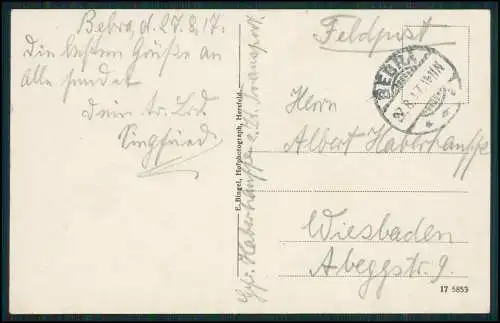 Bebra, d. 27.8.17.
Die besten Grüße an
alle sendet
Dein tr. Brd.
Siegfried
E. Bingel, Hofphotograph, Hersfeld.
Gefr. Haberhauffe z. Zt. Transport.
Feldpost
BEBRA
27.8.17. 11-12N
Herrn
Albert Haberhauffe
Wiesbaden
Abeggstr. 9.
17 5853